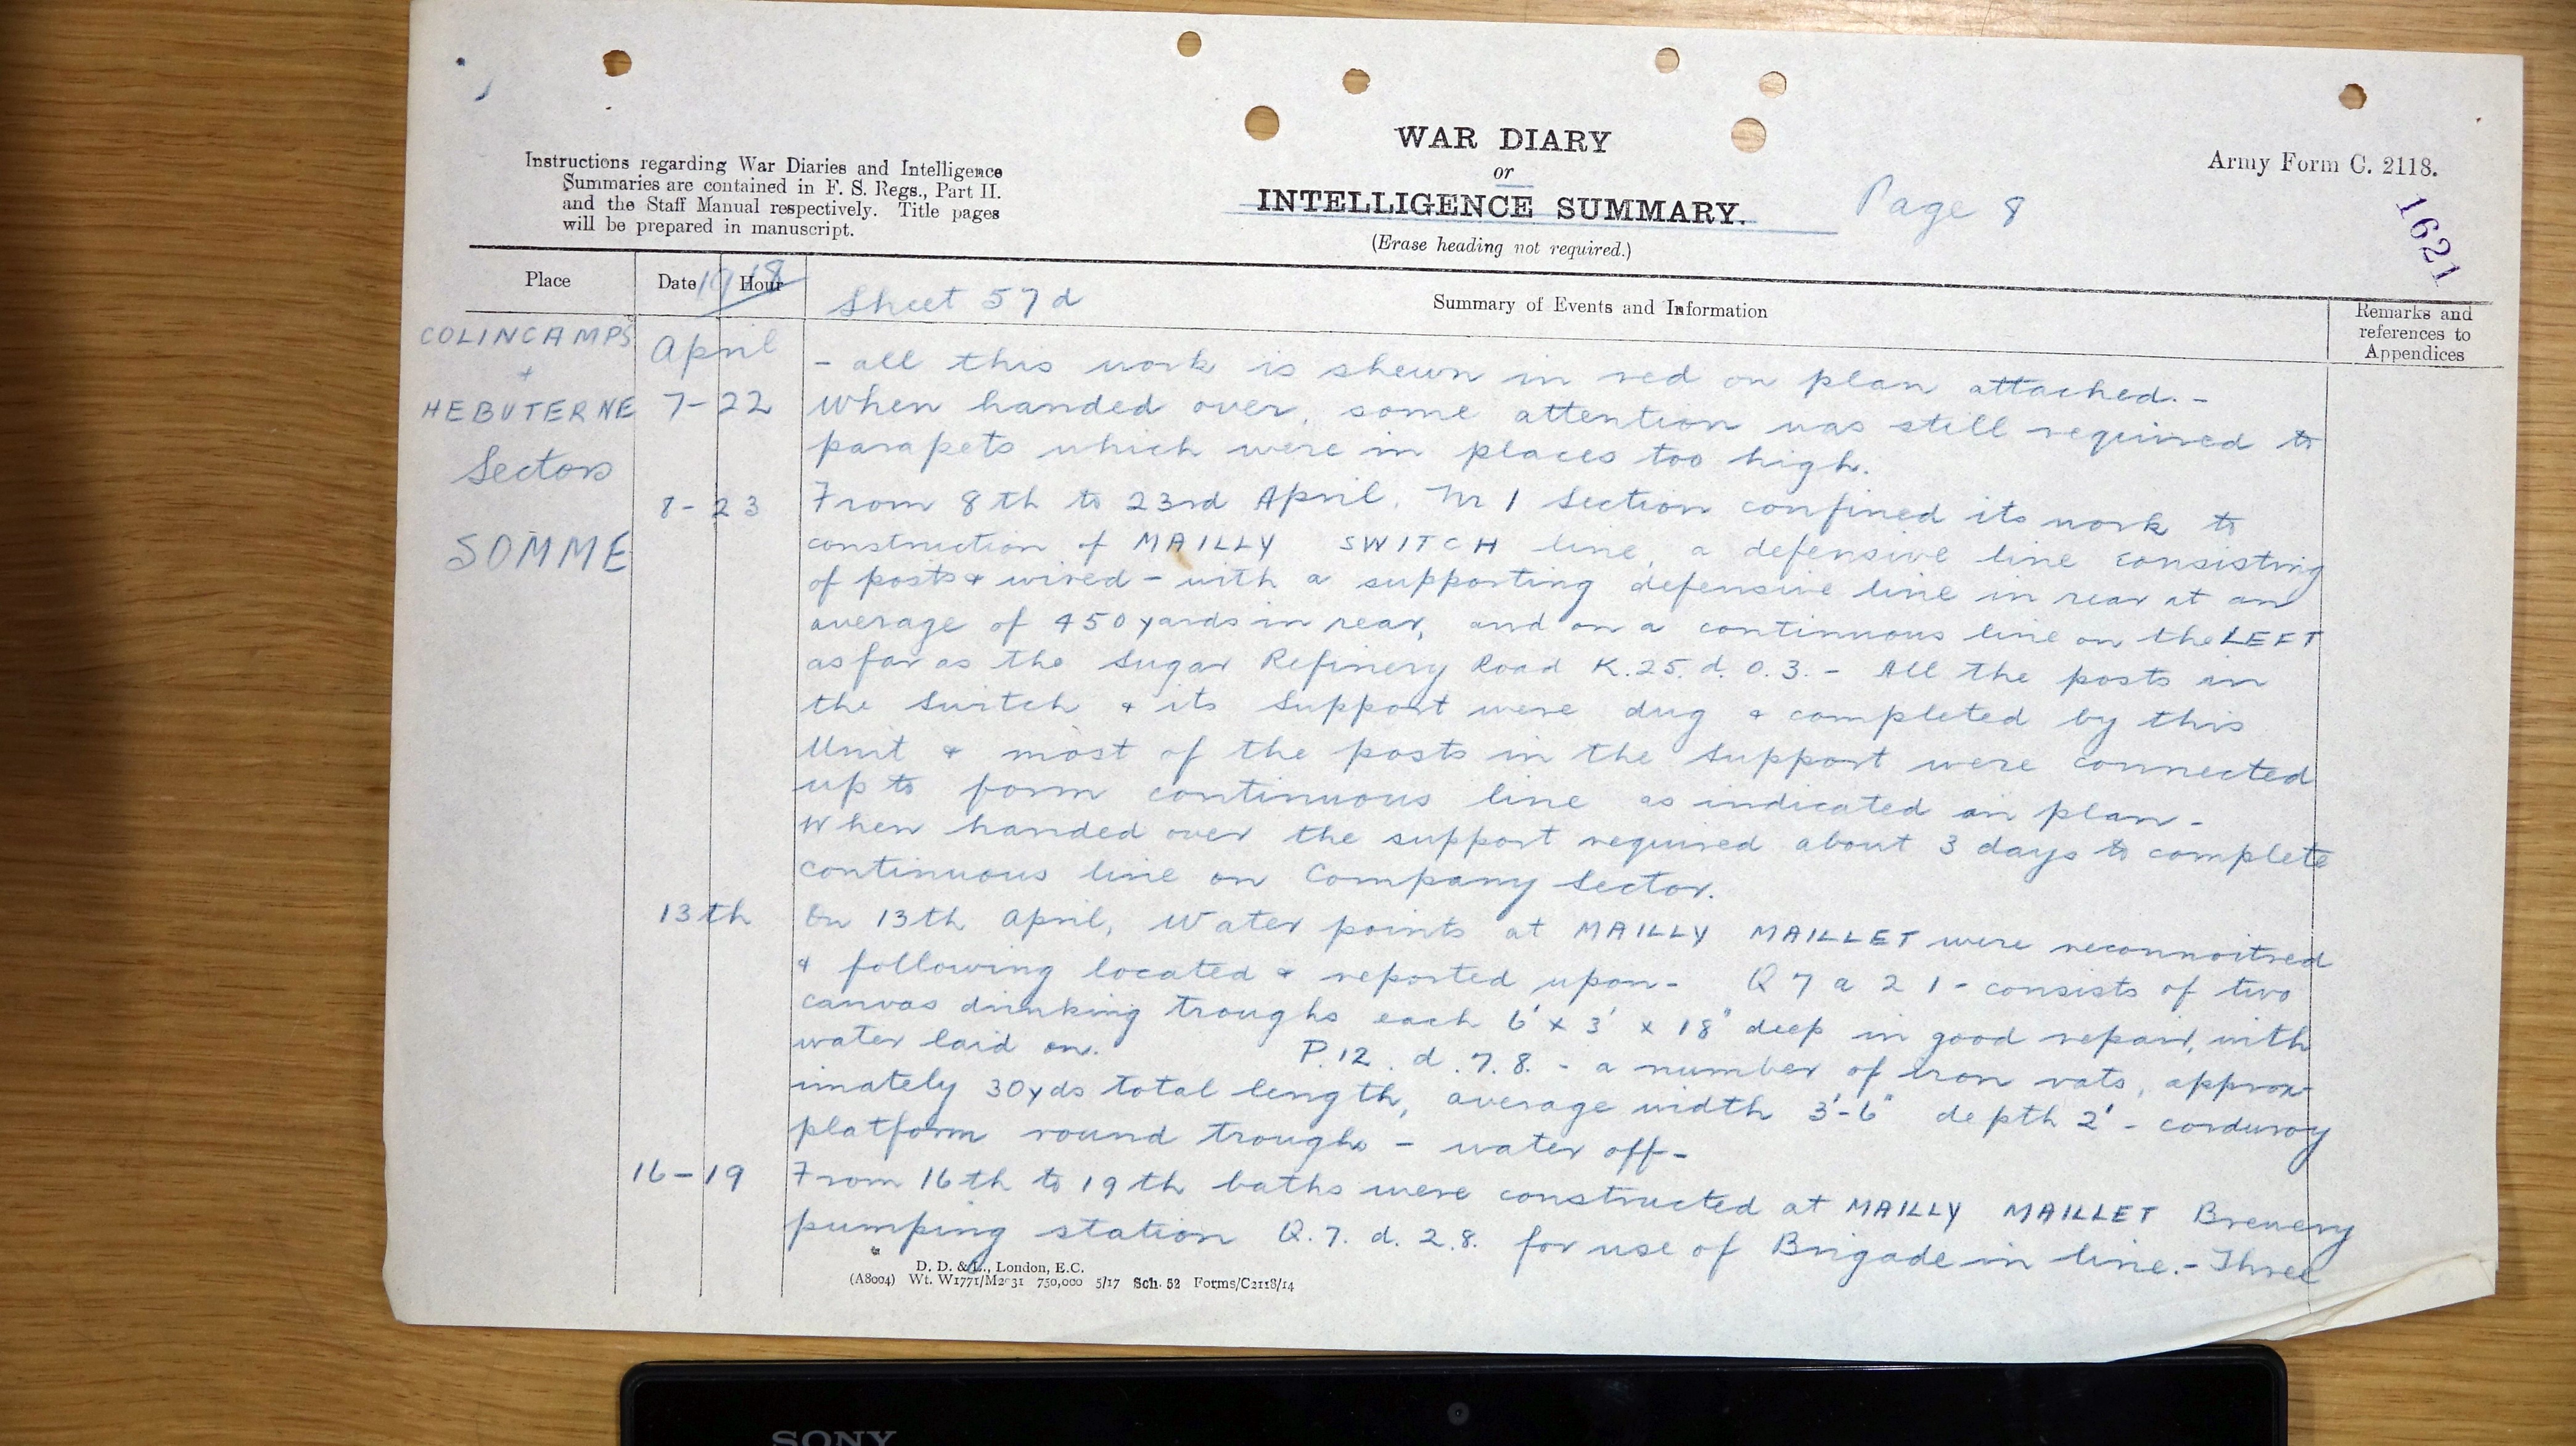 WAR DIARY
or
INTELLIGENCE SUMMARY.
(Erase heading not required.)
Page 8
Army Form C. 2118.
1621
Instructions regarding War Diaries and Intelligence
Summaries are contained in F. S. Regs., Part II.
and the Staff Manual respectively. Title pages
will be prepared in manuscript.
Place
Date
1918
Hour
Sheet 57d
Summary of Events and Information
Remarks and
references to
Appendices
COLINCAMPS
+
HEBUTERNE
Sectors
SOMME
April
7-22
- all this work is shewn in red on plan attached. -
When handed over, some attention was still required to
parapets which were in places too high.
8-23
From 8th to 23rd April. Nr 1 Section confined its work to
construction of MAILLY SWITCH line, a defensive line consisting
of posts & wired - with a supporting defensive line in rear at an
average of 450 yards in rear, and on a continuous line on the LEFT
as far as the Sugar Refinery Road K.25.d.0.3. - All the posts in
the Switch & its Support were dug & completed by this
Unit & most of the posts in the support were connected
up to form continuous line as indicated on plan -
When handed over the support required about 3 days to complete
continuous line on Company Sector.
13th
On 13th April, Water points at MAILLY MAILLET were reconnoitred
& following located & reported upon - Q 7 a 2 1 - consists of two
canvas drinking troughs each 6' x 3' x 18" deep in good repair, with
water laid on. P.12.d.7.8. - a number of iron vats, approx-
imately 30yds total length, average width 3'-6" depth 2' - corduroy
platform round troughs - water off -
16-19
From 16th to 19th baths were constructed at MAILLY MAILLET Brewery
pumping station Q.7.d.2.8. for use of Brigade in line. - Three
D. D. & L., London, E.C.
(A8004) Wt. W1771/M2031 750,000 5/17 Sch. 52 Forms/C2118/14
SONY